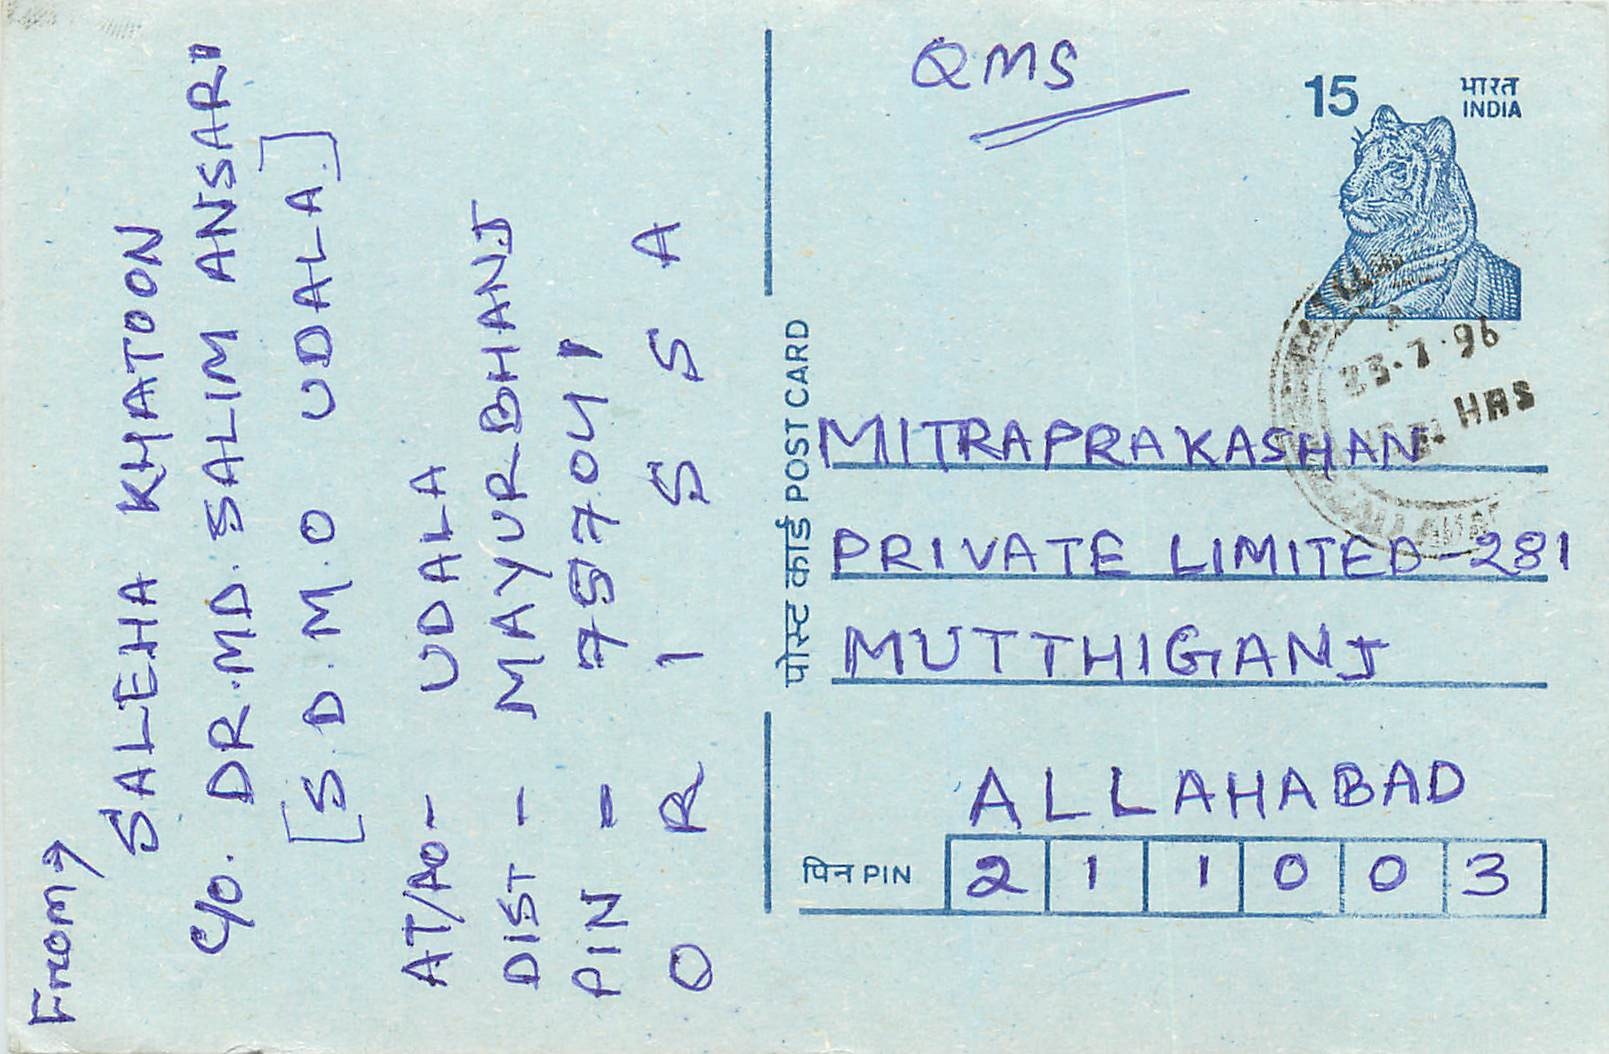 From,
SALEHA KHATOON
C/O. DR. MD. SALIM ANSARI
[S.D.M.O UDALA.]
AT/PO- UDALA
DIST - MAYURBHANJ
PIN = 757041
ORISSA
QMS
15
भारत
INDIA
23.7.96
HRS
पोस्ट कार्ड POST CARD
MITRAPRAKASHAN
PRIVATE LIMITED-281
MUTTHIGANJ
ALLAHABAD
पिन PIN 211003